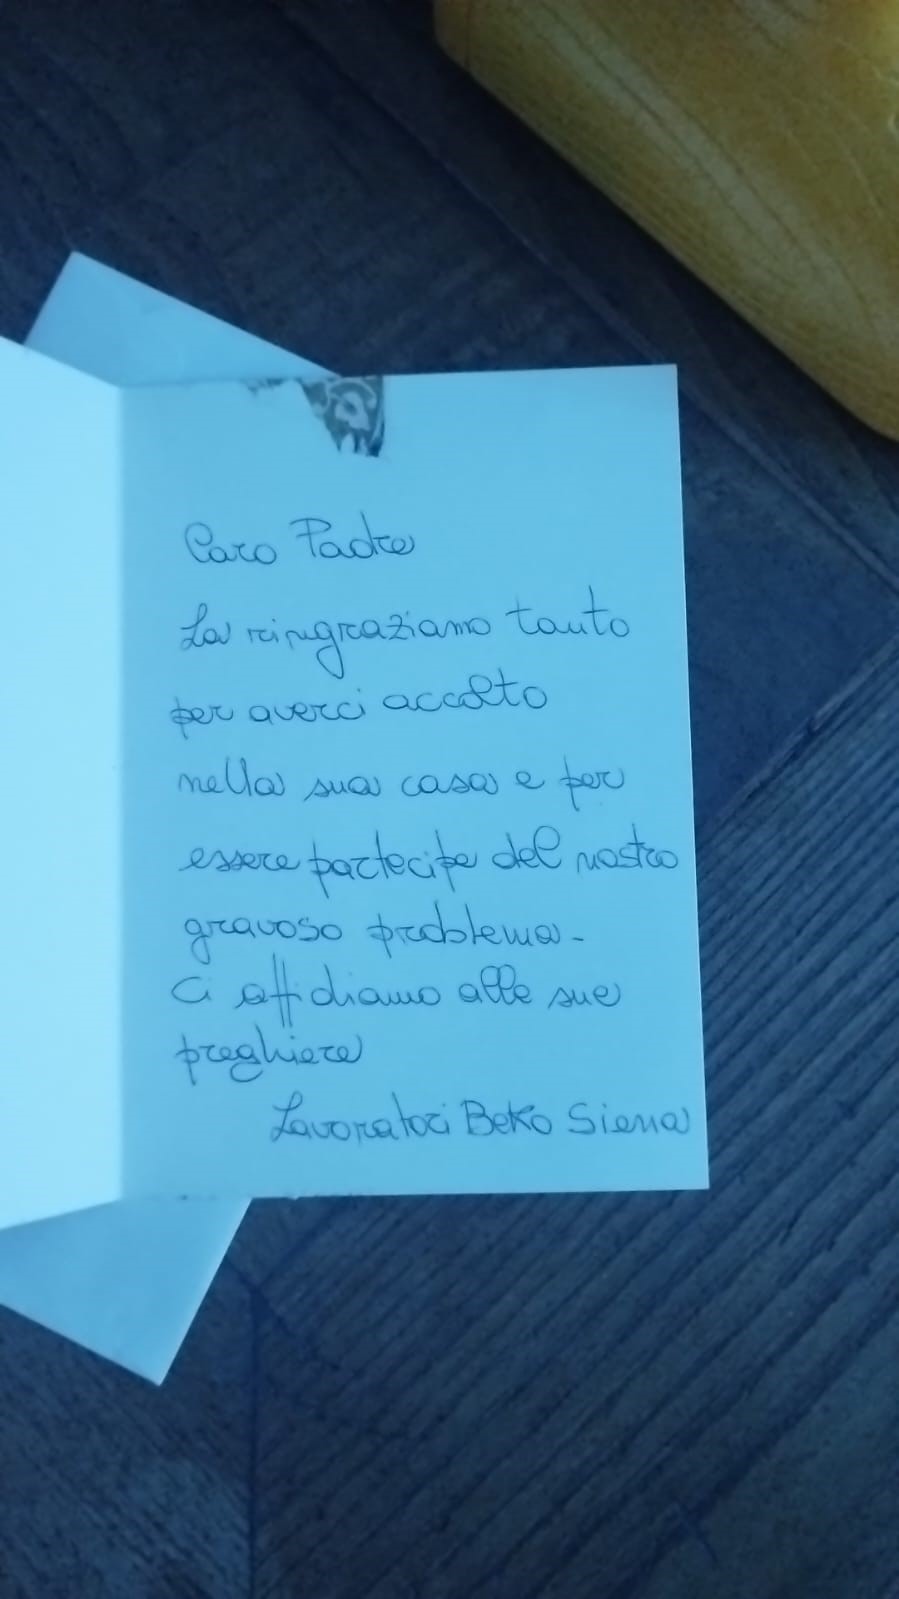 Caro Padre
La ringraziamo tanto
per averci accolto
nella sua casa e per
essere partecipe del nostro
gravoso problema -
Ci affidiamo alle sue
preghiere
Lavoratori Beko Siena